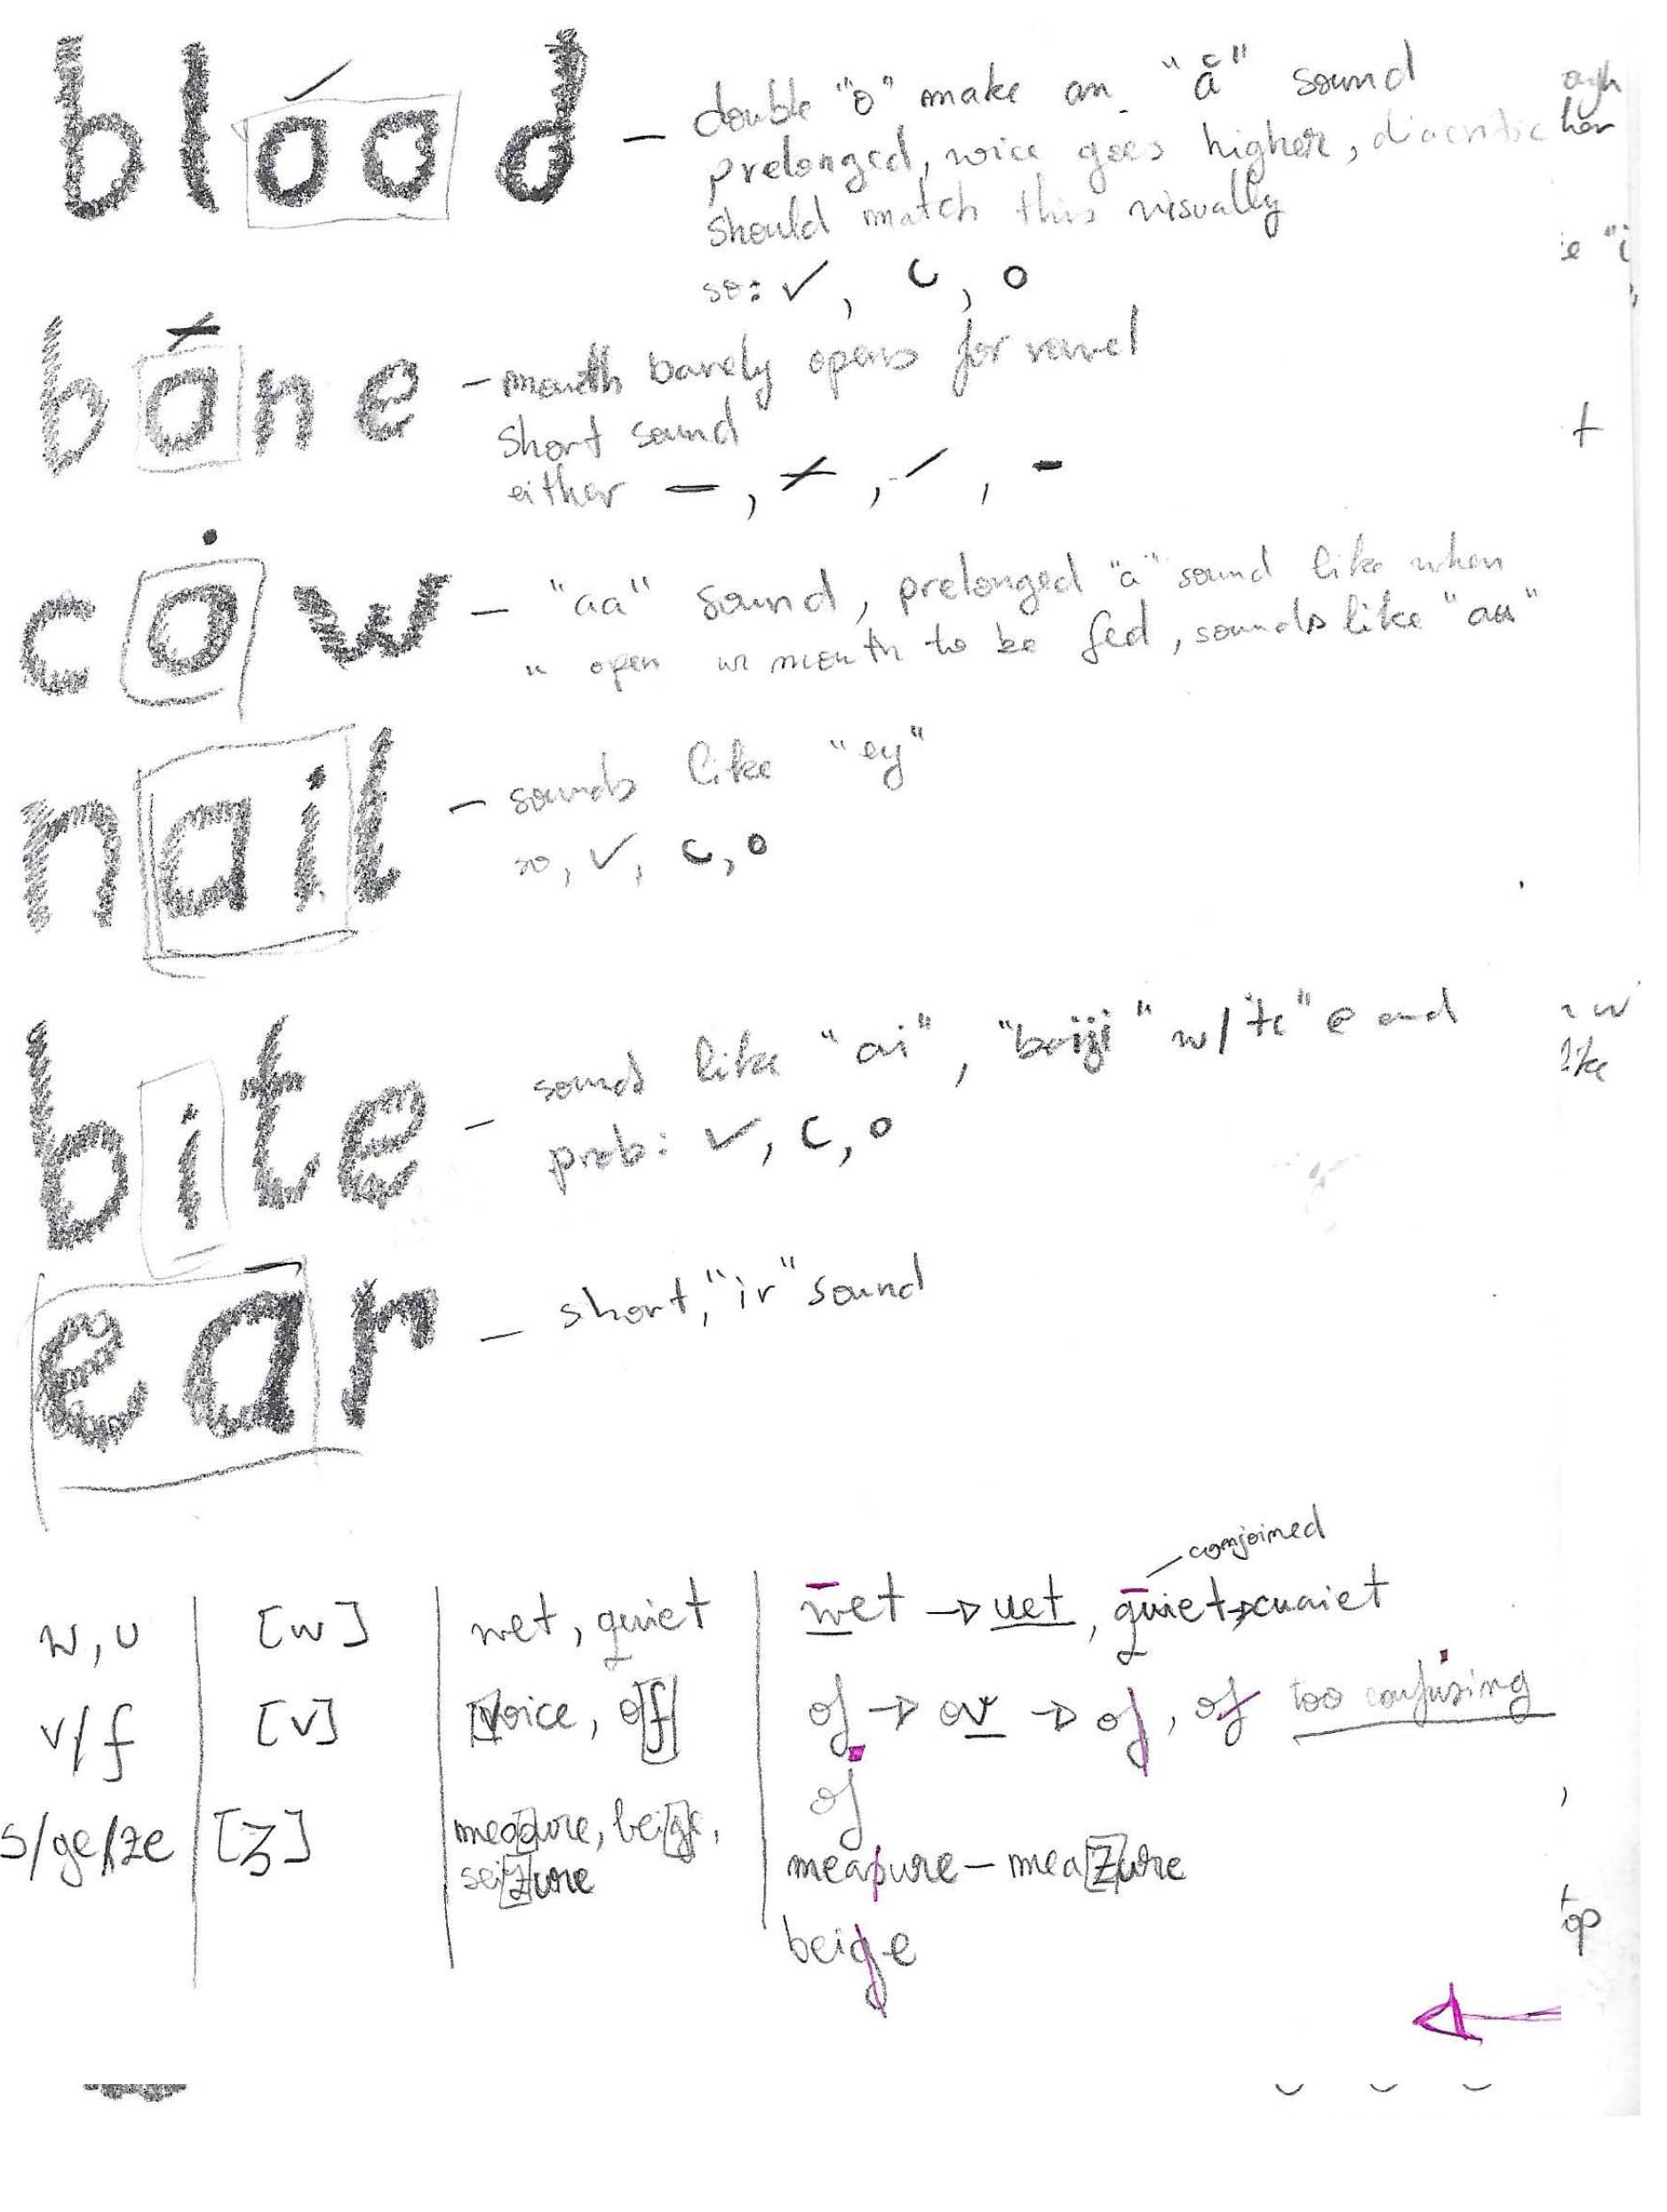 blood – double "o" make an "ǎ" sound
prelonged, voice goes higher, diacritic
should match this visually
so: ✓, c, o
bone – mouth barely opens for vowel
short sound
either –, , /, -
cow – "aa" sound, prelonged "a" sound like when
" open ur mouth to be fed, sounds like "au"
nail – sounds like "ey"
so, ✓, c, o
bite – sound like "ai", "w/ e and
prob: ✓, c, o
ear – short, "ir" sound
conjoined
w, u [w] wet, quiet wet → uet, quiet → cuaiet
v/f [v] voice, of of → ov → of, of too confusing
of
s/ge/ze [ʒ] measure, beige, measure – meaZure
seizure
beige
ugh
her
like
top